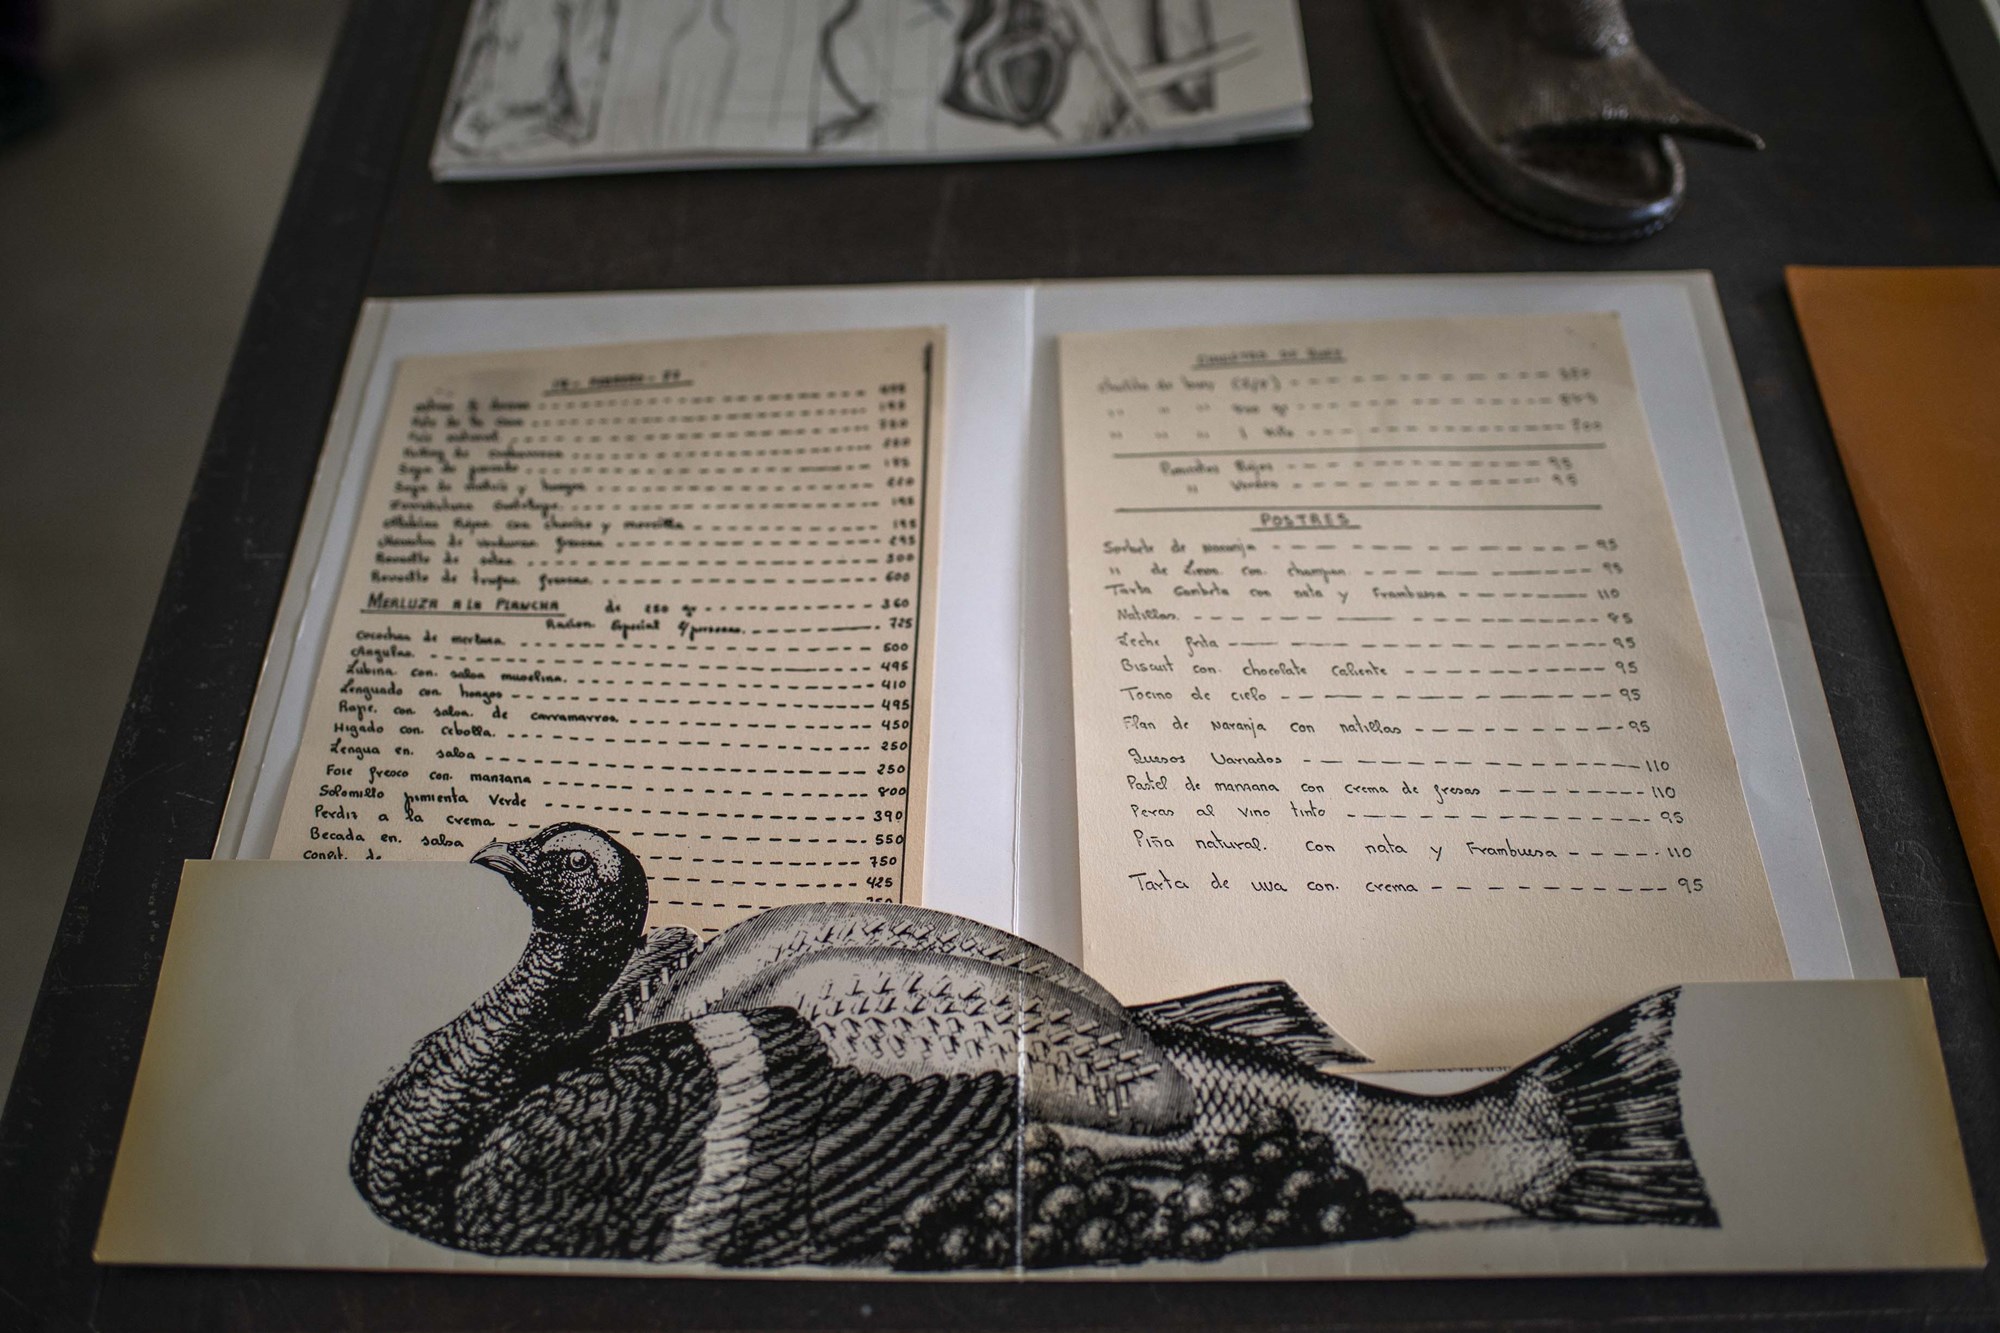 - FEBRERO -
495
195
280
Pudding de
Sopa de pescado 185
Sopa de y hongos 220
195
Alubias Rojas con chorizo y morcilla 195
Menestra de verduras frescas 295
Revuelto de setas 300
Revuelto de trufas frescas 600
MERLUZA A LA PLANCHA de 250 gr 360
Racion Especial 725
Cocochas de merluza 500
Angulas. 495
Lubina con salsa muselina. 410
Lenguado con hongos 495
Rape. con salsa. de carramarros 450
Higado con cebolla. 250
Lengua en. salsa 250
Foie fresco con. manzana 800
Solomillo pimienta Verde 390
Perdiz a la crema 550
Becada en. salsa 750
Confit. de 425
de buey
Chuleta de buey
" " "
" " " 1 Kilo
Pimientos Rojos 95
" Verdes 95
POSTRES
Sorbete de Naranja 95
" de Limon. con. champan. 95
Tarta Gambeta con nata y Frambuesa 110
Natillas. 95
Leche frita 95
Biscuit con. chocolate caliente 95
Tocino de cielo 95
Flan de Naranja con natillas 95
Quesos Variados 110
Pastel de manzana con crema de fresas 110
Peras al vino tinto 95
Piña natural. con nata y Frambuesa 110
Tarta de uva con. crema 95